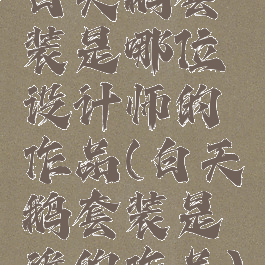 白天鹅套
装是哪位
设计师的
作品(白天
鹅套装是
谁的作品)